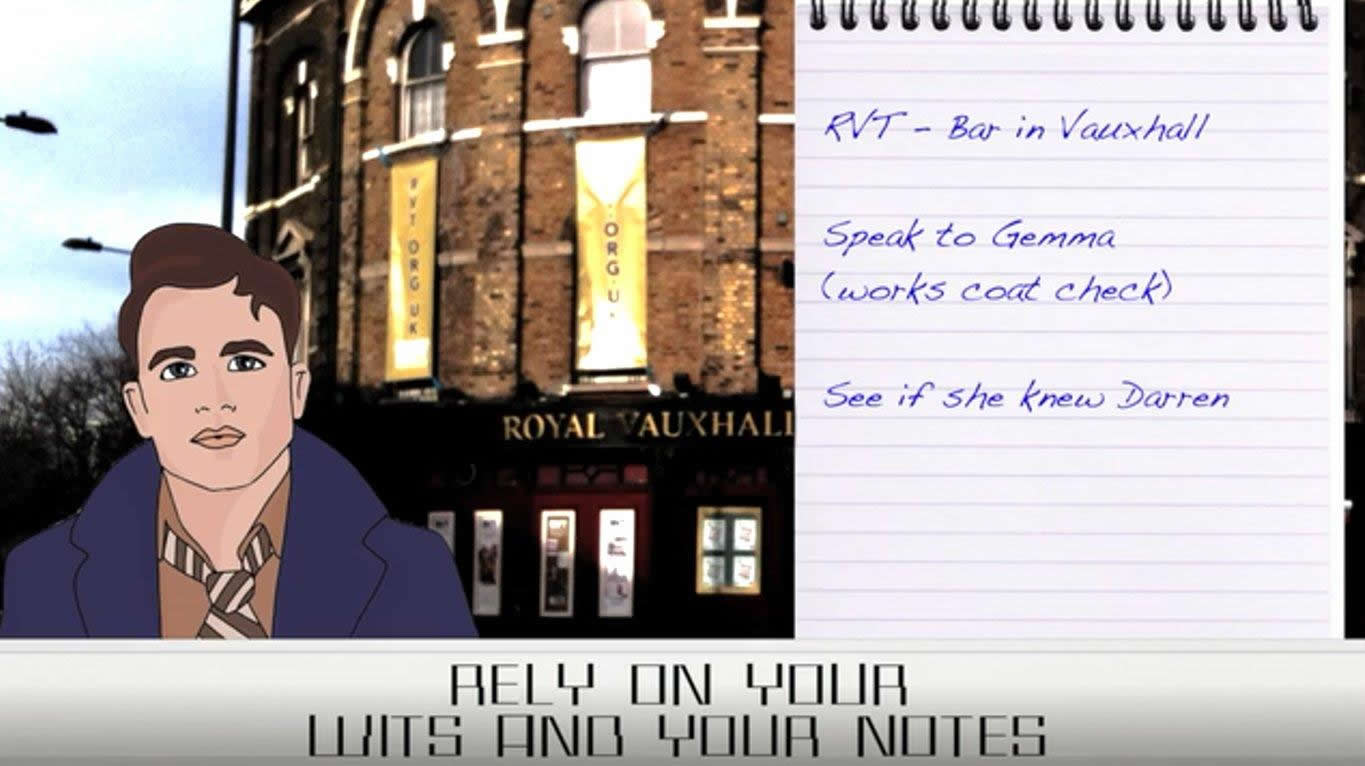 RVT ORG UK
ORG U
ROYAL VAUXHALL
RVT - Bar in Vauxhall
Speak to Gemma
(works coat check)
See if she knew Darren
RELY ON YOUR
WITS AND YOUR NOTES